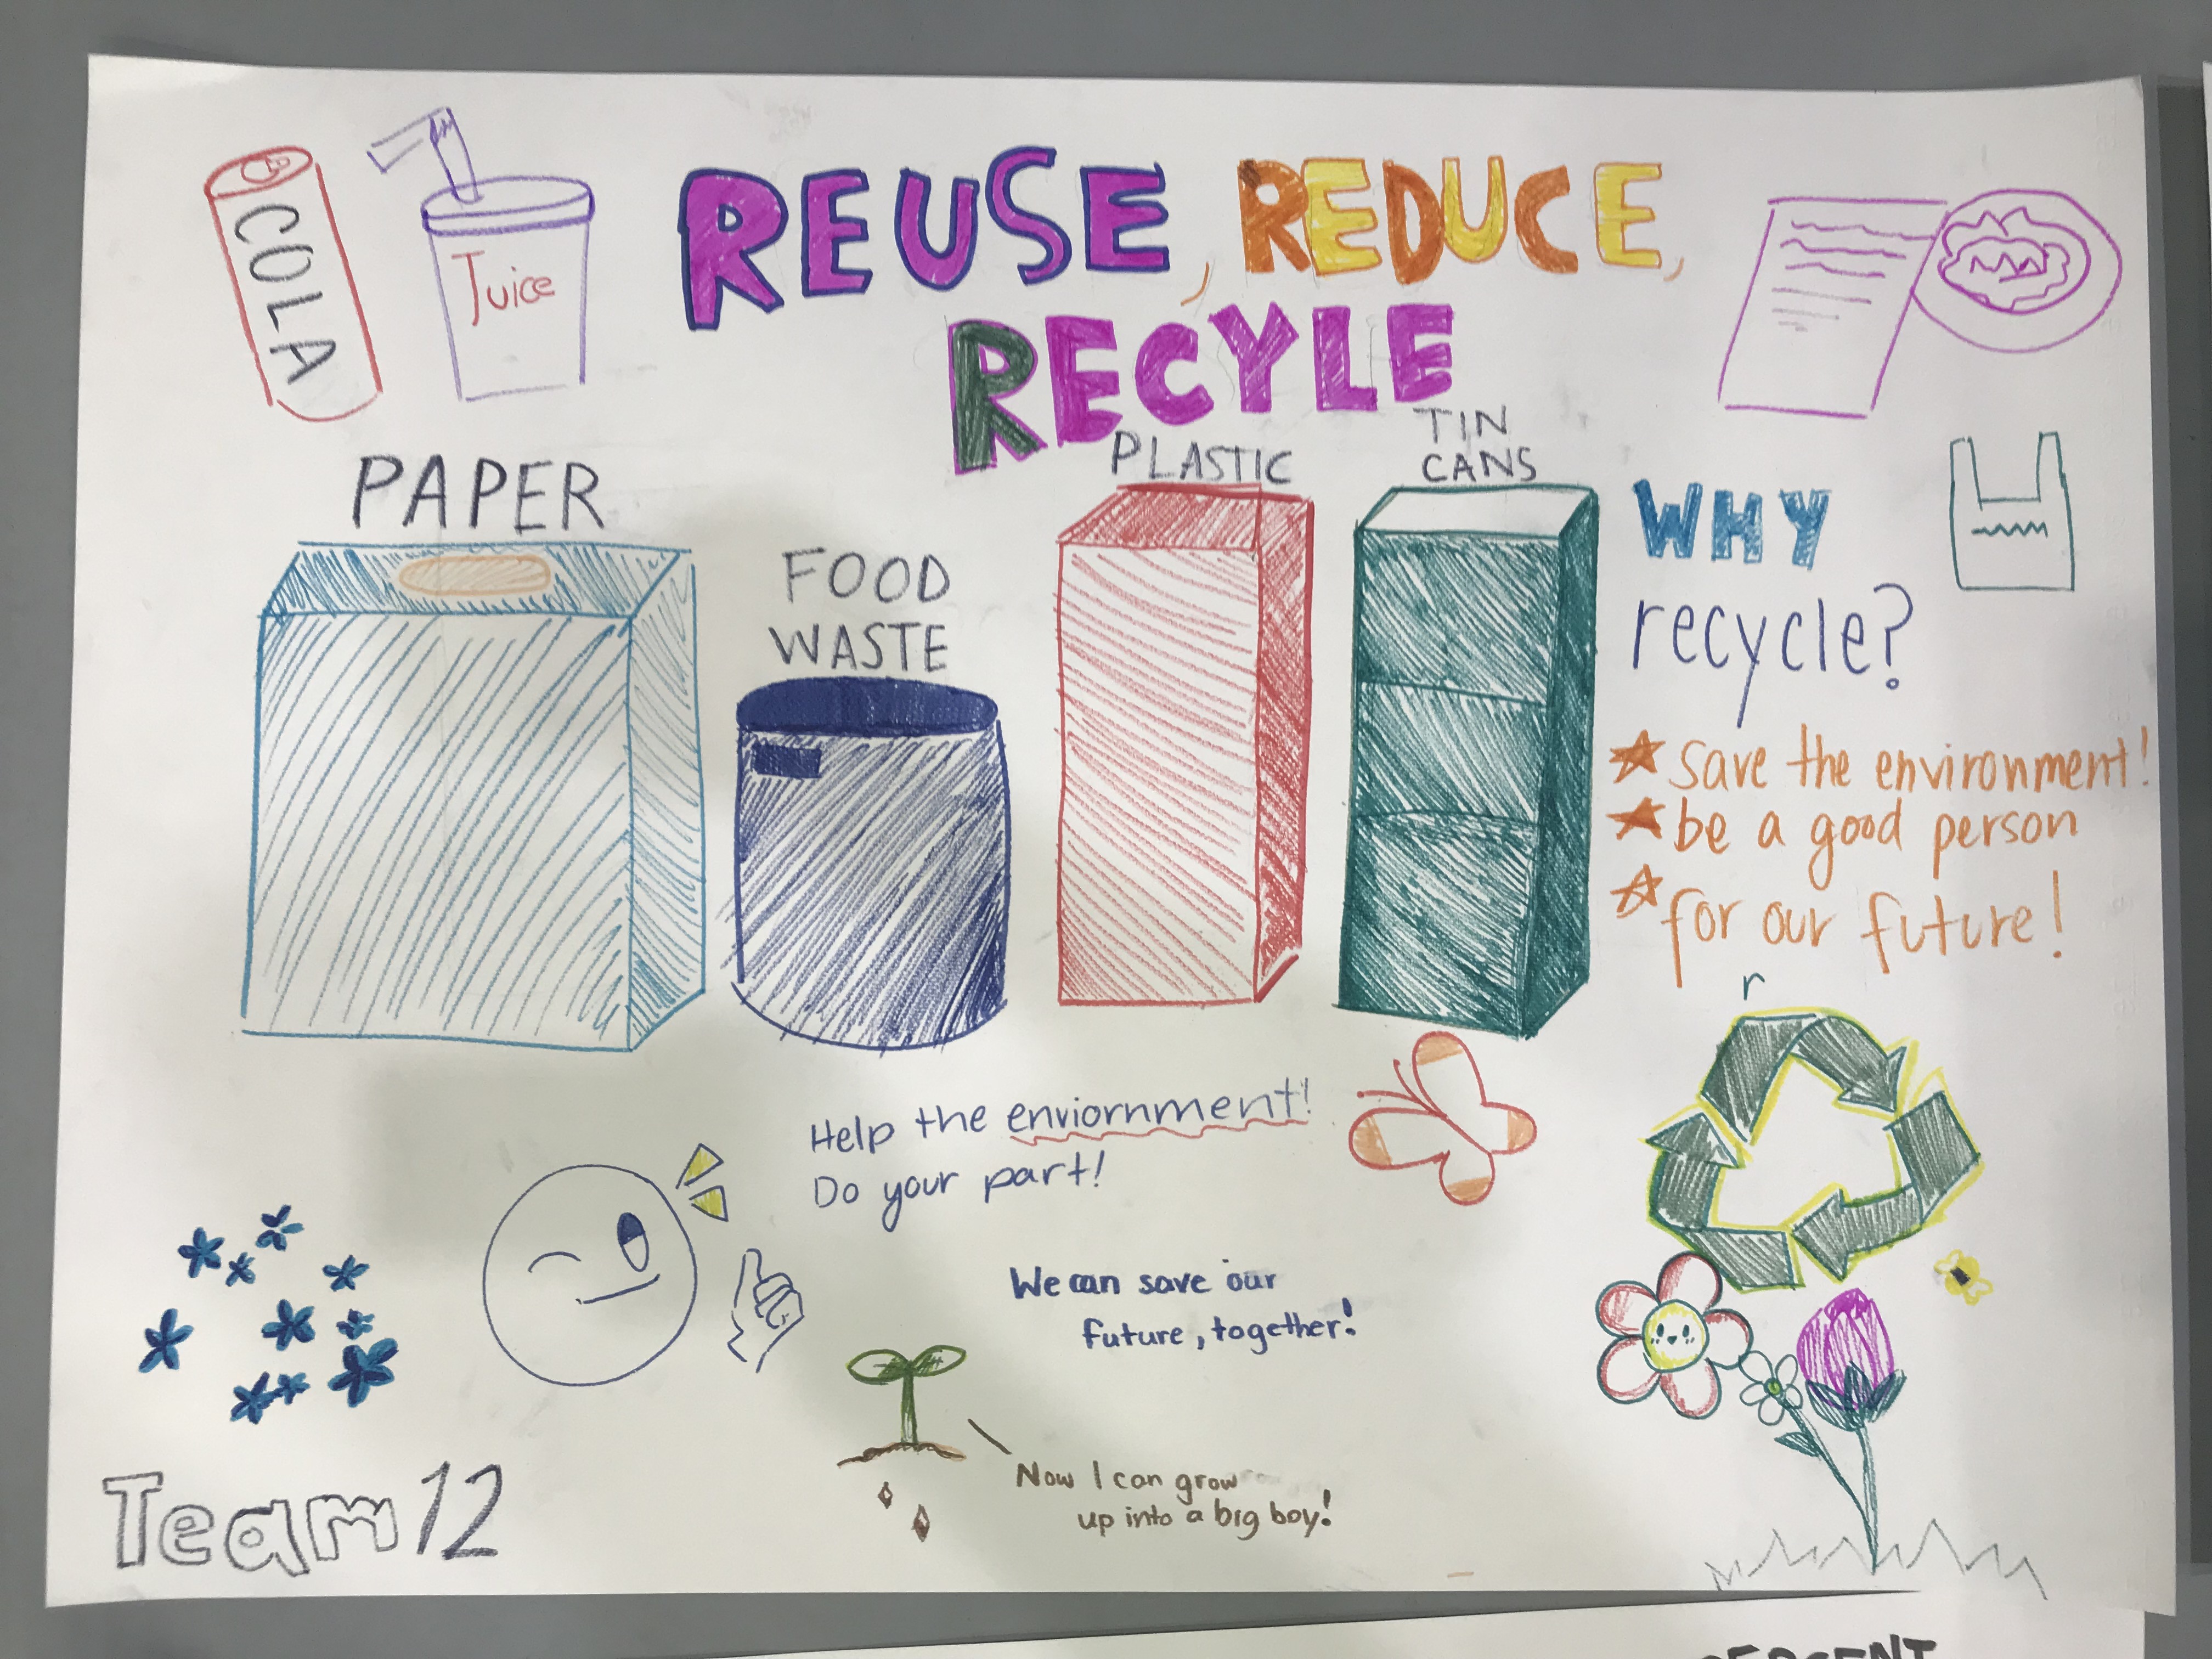 COLA
Juice
REUSE, REDUCE,
RECYLE
PAPER
FOOD
WASTE
PLASTIC
TIN
CANS
WHY
recycle?
save the environment!
be a good person
for our future!
r
Help the enviornment!
Do your part!
We can save our
future, together!
Now I can grow
up into a big boy!
Team 12